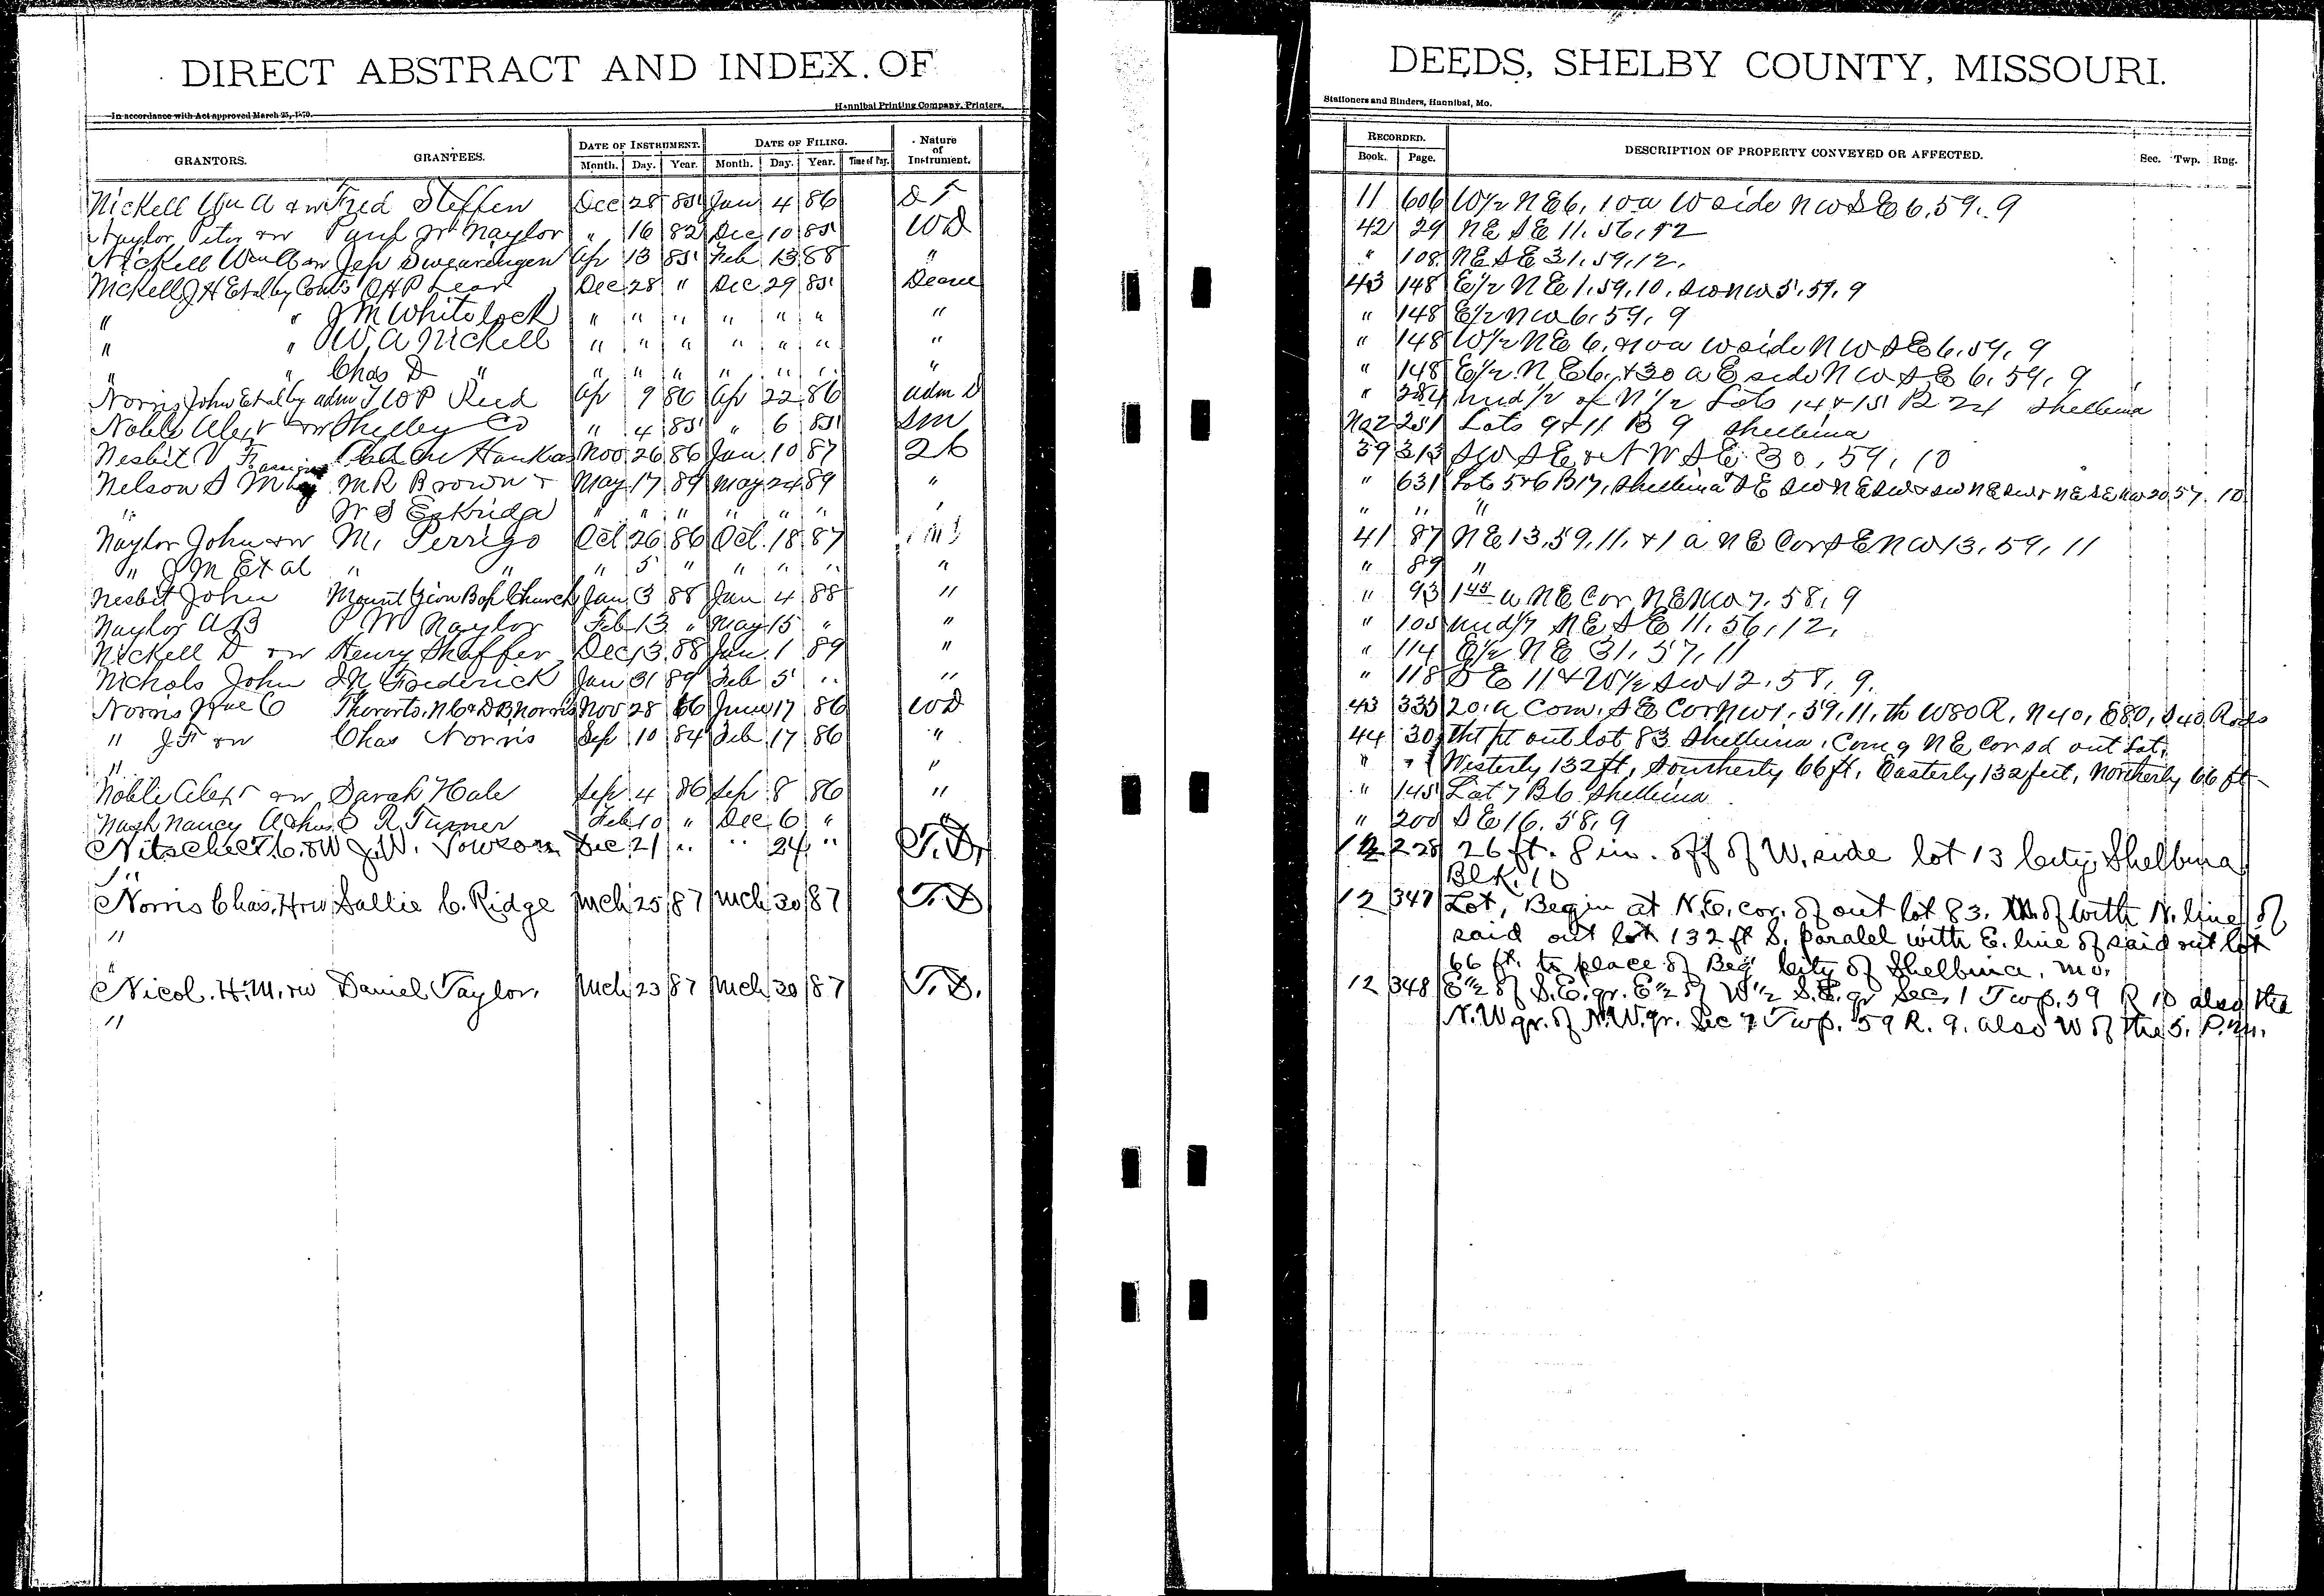 DIRECT ABSTRACT AND INDEX OF
In accordance with Act approved March 25, 1870.
Hannibal Printing Company, Printers.
GRANTORS. GRANTEES. DATE OF INSTRUMENT. Month. Day. Year. DATE OF FILING. Month. Day. Year. Time of Day. Nature of Instrument.
Nickell Wm A & w Fred Steffen Dec 28 85 Jan 4 86 D T
Naylor Peter & w Naylor " 16 82 Dec 10 85 WD
Nickell & w Swearengen Apr 13 85 Feb 13 88 "
Nickell J H Et al by P Lear Dec 28 " Dec 29 85 Decree
" " J M Whitelock " " " " " " "
" " W. A Nickell " " " " " " "
" " Chas D " " " " " " " "
Norris John Et al by adm T W P Reed Apr 9 86 Apr 22 86 adm D
Noble Alexr & w Shelby Co " 4 85 " 6 85 SM
Nesbit V F Hankas Nov 26 86 Jan 10 87 26
Nelson S M M R Brown & May 17 89 May 24 89 "
" W S Eskridge " " " " " " "
Naylor John & w M. Perrigo Oct 26 86 Oct. 18 87
" J M Et al " " " 5 " " " " "
Nesbit John Mount Zion Bap Church Jan 3 88 Jan 4 88 "
Naylor A B P W Naylor Feb 13 " May 15 " "
Nickell D & w Henry Shaffer Dec 13 88 Jan. 1 89 "
Nichols John J N Frederick Jan 31 89 Feb 5 " "
Norris C N C & D B Norris Nov 28 66 June 17 86 WD
" J F & w Chas Norris Sep 10 84 Feb 17 86 "
" "
Noble Alexr & w Sarah Hale Sep 4 86 Sep 8 86 "
Nash Nancy A & hus O R Turner Feb 10 " Dec 6 " "
Nitscher T. C. & W J. W. Towson Dec 21 " " 24 " T. D.
"
Norris Chas. H & w Sallie C. Ridge Mch 25 87 Mch 30 87 T. D
"
"
Nicol. H. M. & w Daniel Taylor. Mch 23 87 Mch 30 87 T. D.
"
DEEDS, SHELBY COUNTY, MISSOURI.
Stationers and Binders, Hannibal, Mo.
RECORDED. Book. Page. DESCRIPTION OF PROPERTY CONVEYED OR AFFECTED. Sec. Twp. Rng.
11 606 W½ NE 6, 10 a W side NW SE 6, 59, 9
42 29 NE SE 11, 56, 12
" 108 NE SE 31, 59, 12.
43 148 E½ NE 1, 59, 10, SW NW 5, 59, 9
" 148 E½ NW 6, 59, 9
" 148 W½ NE 6, & 10 a W side NW SE 6, 59, 9
" 148 E½ NE 6, & 30 a E side NW SE 6, 59, 9
" 284 und ½ of N½ Lots 14 & 15 B 24 Shelbina
No 2 251 Lots 9 & 11 B 9 Shelbina
39 313 SW SE & NW SE 30, 59, 10
" 631 Lots 5 & 6 B 17, Shelbina SE SW NE SW & SW NE SW & NE SE NW 20, 57, 10
" " "
41 87 NE 13, 59, 11, & 1 a NE Cor SE NW 13, 59, 11
" 89 "
" 93 1 45 a NE Cor NE NW 7, 58, 9
" 105 und 1/7 NE SE 11, 56, 12,
" 114 E½ NE 31, 57, 11
" 118 SE 11 & W½ SW 12, 58, 9.
43 335 20. a Com. SE Cor NW 1, 59, 11, th W 80 R, N 40, E 80, S 40 Rods
44 30 tht pt out lot 83 Shelbina, Comg NE cor sd out Lot,
" " Westerly 132 ft, Southerly 66 ft, Easterly 132 feet, Northerly 66 ft
" 145 Lot 7 B 6 Shelbina
" 200 SE 16, 58, 9
12 228 26 ft. 8 in. off of W. side lot 13 City Shelbina
Blk. 10
12 347 Lot, Begin at N. E. cor. of out lot 83. with N. line of
said out lot 132 ft S. paralel with E. line of said out lot
66 ft. to place of Beg City of Shelbina, Mo.
12 348 E½ of S. E. qr. E½ of W½ S. E. qr Sec. 1 Twp. 59 R 10 also the
N. W qr. of N. W. qr. Sec 7 Twp. 59 R. 9. also W of the 5. P. M.